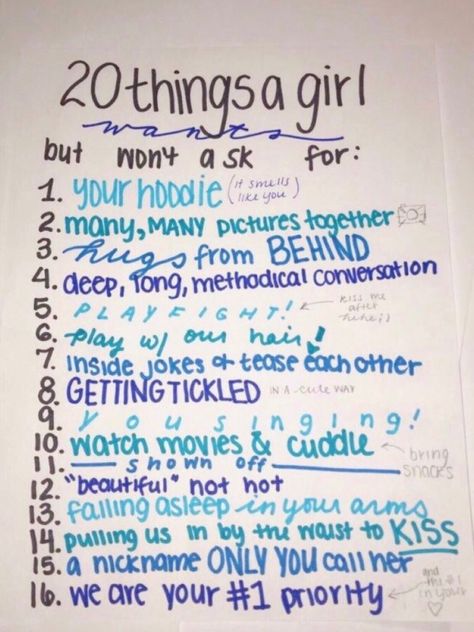 20 things a girl
wants
but won't ask for:
1. your hoodie (it smells like you)
2. many, MANY pictures together
3. hugs from BEHIND
4. deep, long, methodical conversation
5. PLAYFIGHT! ← kiss me after hehe :)
6. play w/ our hair!
7. inside jokes & tease each other
8. GETTING TICKLED IN A-cute WAY
9. you singing!
10. watch movies & cuddle ← bring snacks
11. shown off
12. "beautiful" not hot
13. falling asleep in your arms
14. pulling us in by the waist to KISS
15. a nickname ONLY YOU call her
16. we are your #1 priority ← and the #1 in your ♡